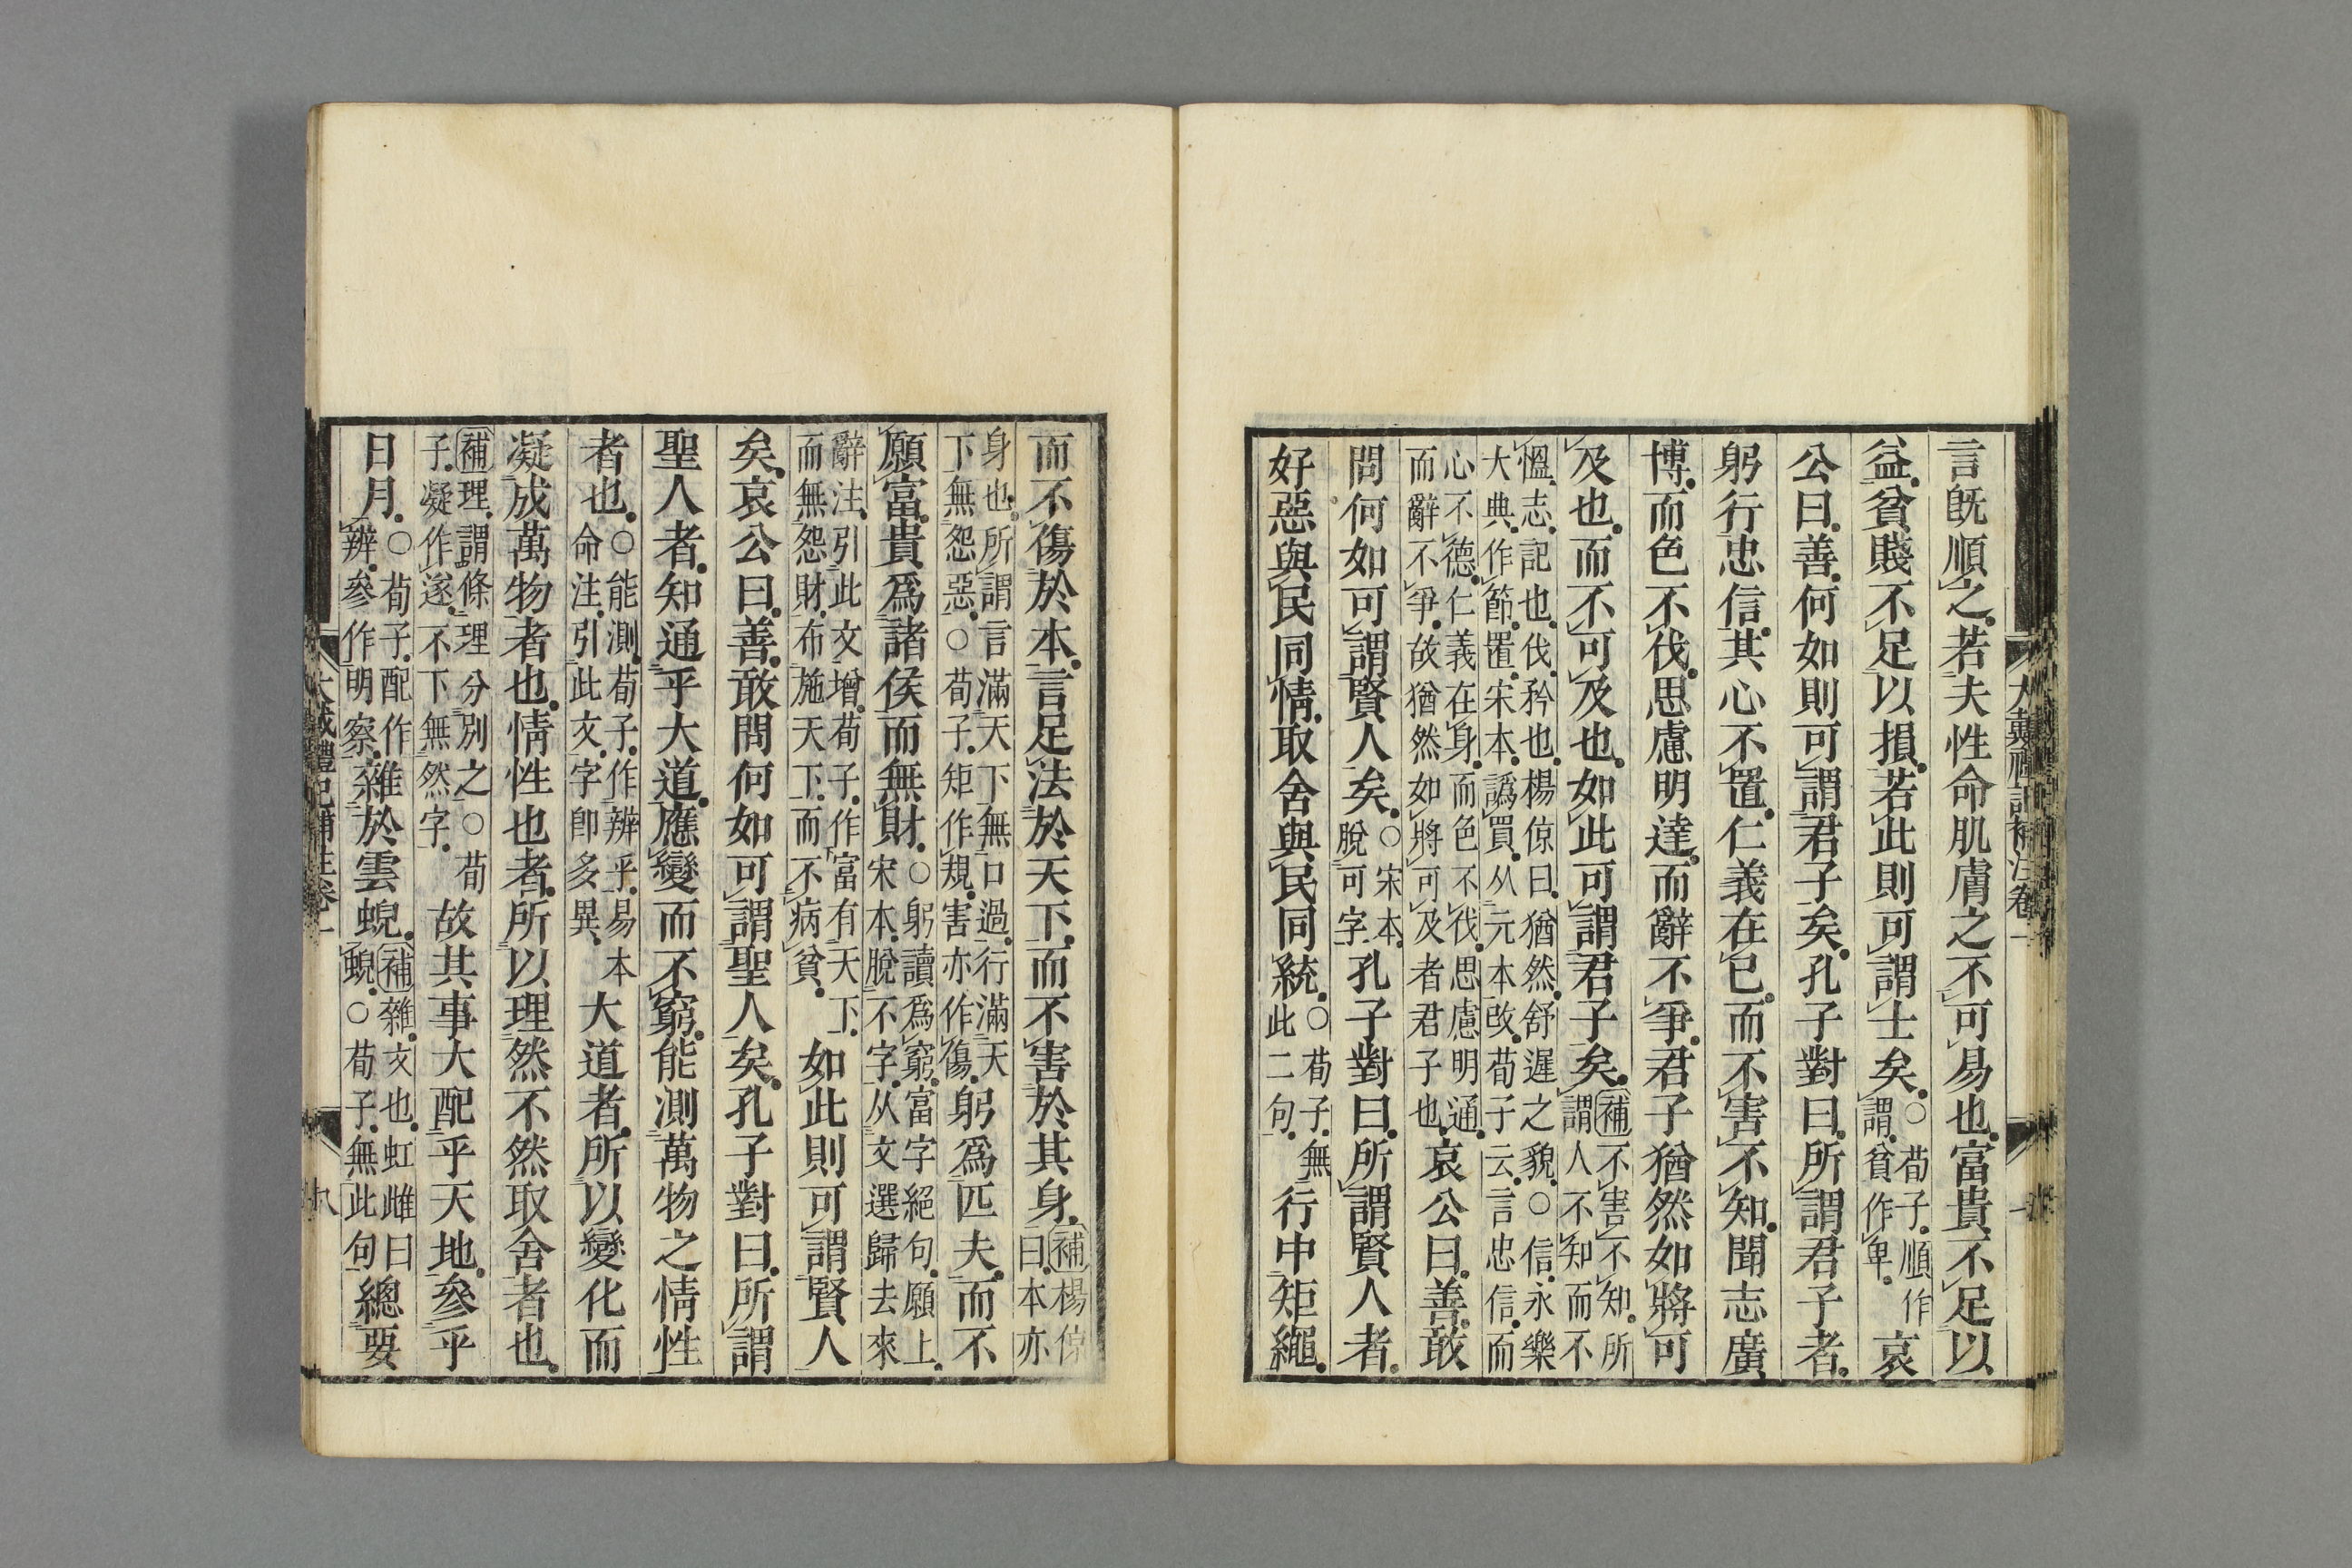 言旣順之若夫性命肌膚之不可易也富貴不足以
益貧賤不足以損若此則可謂士矣○荀子順作謂貧作卑哀
公曰善何如則可謂君子矣孔子對曰所謂君子者
躬行忠信其心不置仁義在己而不害不知聞志廣
博而色不伐思慮明達而辭不爭君子猶然如將可
及也而不可及也如此可謂君子矣補不害不知所謂人不知而不
慍志記也伐矜也楊倞曰猶然舒遲之貌○信永樂
大典作節置宋本譌買从元本改荀子云言忠信而
心不德仁義在身而色不伐思慮明通
而辭不爭故猶然如將可及者君子也哀公曰善敢
問何如可謂賢人矣○宋本脫可字孔子對曰所謂賢人者
好惡與民同情取舍與民同統○荀子無此二句行中矩繩
而不傷於本言足法於天下而不害於其身補楊倞曰本亦
身也所謂言滿天下無口過行滿天
下無怨惡○荀子矩作規害亦作傷躬爲匹夫而不
願富貴爲諸侯而無財○躬讀爲窮富字絕句願上宋本脫不字从文選歸去來
辭注引此文增荀子作富有天下
而無怨財布施天下而不病貧如此則可謂賢人
矣哀公曰善敢問何如可謂聖人矣孔子對曰所謂
聖人者知通乎大道應變而不窮能測萬物之情性
者也○能測荀子作辨乎易本命注引此文字卽多異大道者所以變化而
凝成萬物者也情性也者所以理然不然取舍者也
補理謂條理分別之○荀子凝作遂不下無然字故其事大配乎天地參乎
日月○荀子配作辨參作明察雜於雲蜺補雜文也虹雌曰蜺○荀子無此句總要
大戴禮記補注卷一
八